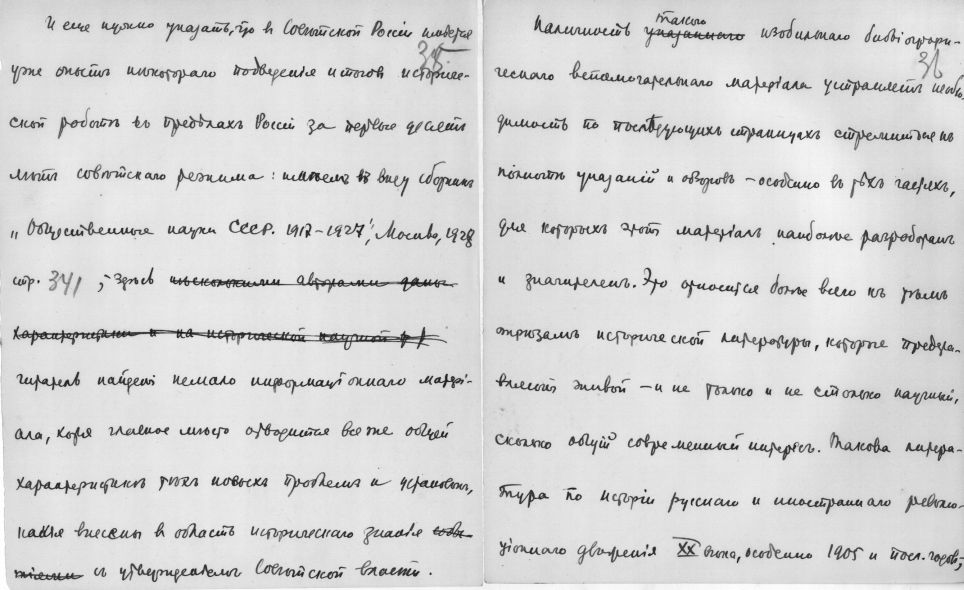 35
И еще нужно указать, что в Советской Россіи имѣется
уже опытъ нѣкотораго подведенія итоговъ историче-
ской работы въ предѣлахъ Россіи за первые десять
лѣтъ совѣтскаго режима: имѣемъ въ виду сборникъ
„Общественные науки СССР. 1917–1927", Москва, 1928
стр. 341; здѣсь нѣсколькими авторами даны
характеристики и на исторической научной
читатель найдетъ немало информаціоннаго матері-
ала, хотя главное мѣсто отводится все же общей
характеристикѣ тѣхъ новыхъ проблемъ и установокъ,
какія внесены въ область историческаго знанія
съ утвержденіемъ Совѣтской власти.
36
Наличность такого указаннаго изобильнаго библіографи-
ческаго вспомогательнаго матеріала устраняетъ необхо-
димость по послѣдующихъ страницахъ стремиться къ
полнотѣ указаній и обзоровъ – особенно въ тѣхъ частяхъ,
для которыхъ этотъ матеріалъ наиболѣе разработанъ
и значителенъ. Это относится болѣе всего къ тѣмъ
отрѣзамъ исторической литературы, которые предста-
вляютъ живой – и не только и не столько научный,
сколько общій современный интересъ. Такова литера-
тура по исторіи русскаго и иностраннаго револю-
ціоннаго движенія XX вѣка, особенно 1905 и посл. годовъ;